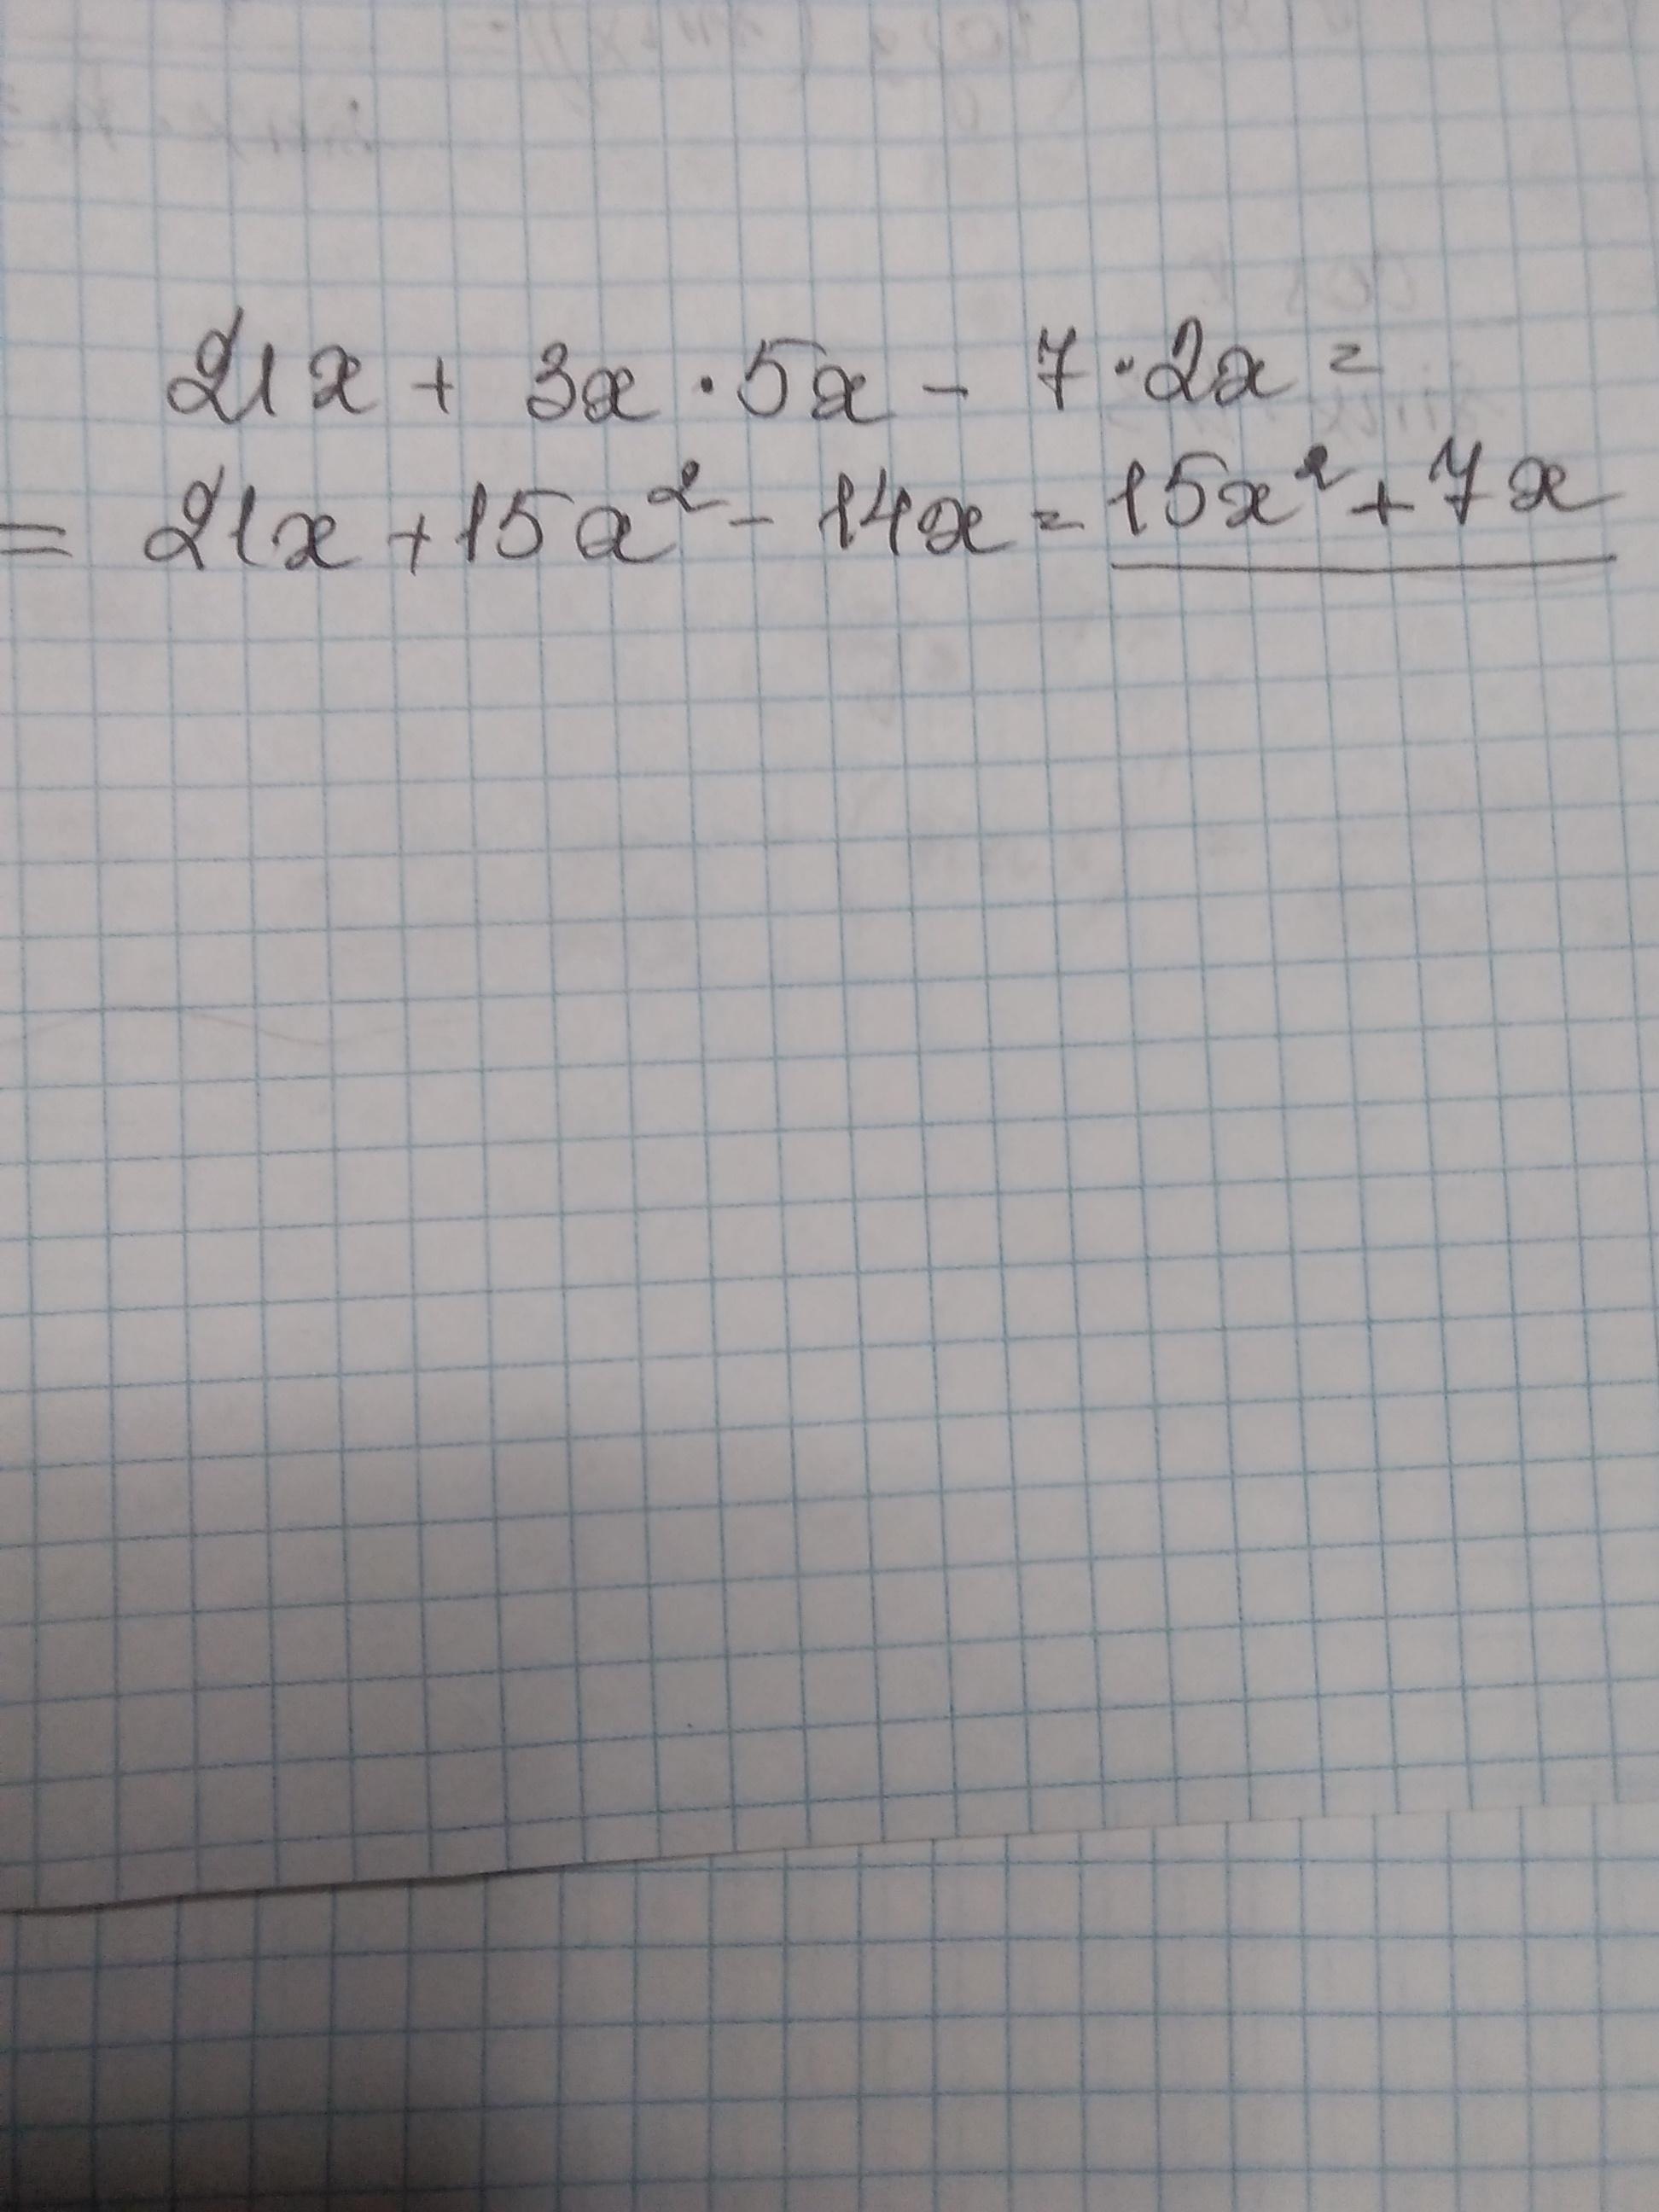 21x + 3x · 5x - 7 · 2x =
= 21x + 15x² - 14x = 15x² + 7x